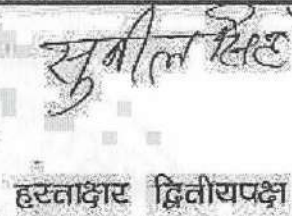 सुनील सिंह
हस्ताक्षर द्वितीयपक्ष